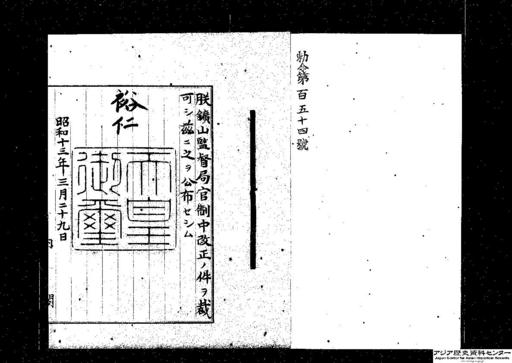 勅令第百五十四號
朕鑛山監督局官制中改正ノ件ヲ裁
可シ茲ニ之ヲ公布セシム
裕仁
天皇
御璽
昭和十三年三月二十九日
内閣
アジア歴史資料センター
Japan Center for Asian Historical Records